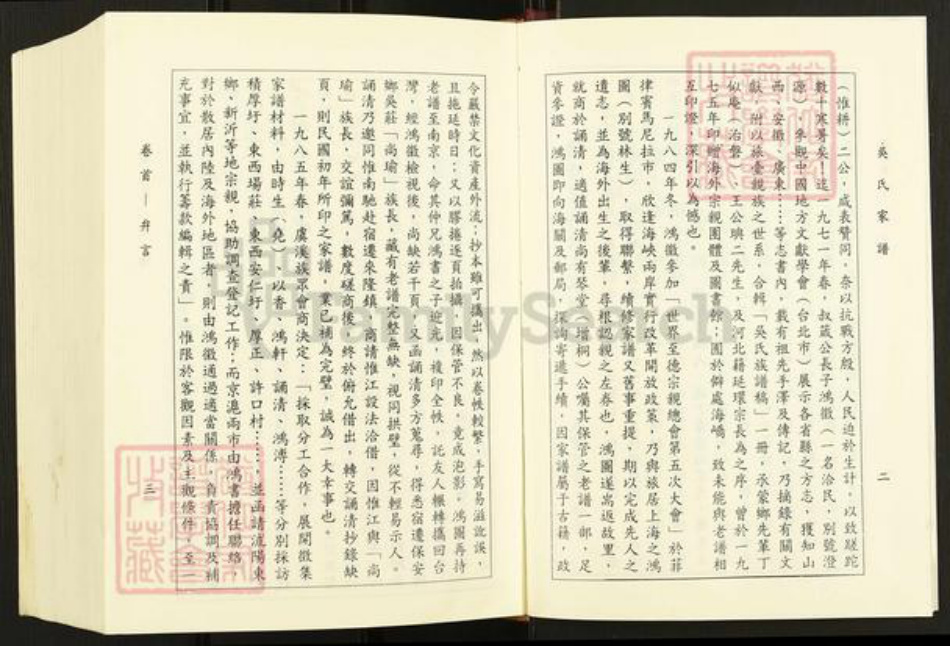 吳氏家譜
二
(惟耕)二公,咸表贊同,奈以抗戰方殷,人民迫於生計,以致蹉跎
數十寒暑矣!迨一九七一年春,叔葳公長子鴻徽(一名洽民,別號澄
源),參觀中國地方文獻學會(台北市)展示各省縣之方志,獲知山
西、安徽、廣東……等志書內,載有祖先手澤及傳記,乃摘錄有關文
獻,附以旅臺親族之世系,合輯「吳氏族譜稿」一冊,承蒙鄉先輩丁
似庵(治磐)、王公璵二先生,及河北籍延環宗長為之序,曾於一九
七五年印贈海外宗親團體及圖書館;囿於僻處海嶠,致未能與老譜相
互印證,深引以為憾也。
一九八四年冬,鴻徽參加「世界至德宗親總會第五次大會」於菲
律賓馬尼拉市,欣逢海峽兩岸實行改革開放政策,乃與旅居上海之鴻
圖(別號林生),取得聯繫,續修家譜又舊事重提,期以完成先人之
遺志,並為海外出生之後輩,尋根認親之左券也,鴻圖遂耑返故里,
就商於誦清,適值誦清尚有琴堂(增桐)公囑其保管之老譜一部,足
資參證,鴻圖即向海關及郵局,探詢寄遞手續,因家譜屬于古籍,政
令嚴禁文化資產外流;抄本雖可攜出,然以卷帙較繁,手寫易滋訛誤,
且拖延時日;又以膠捲逐頁拍攝,因保管不良,竟成泡影。鴻圖再持
老譜至南京,命其仲兄鴻書之子迎光,複印全帙,託友人輾轉攜回台
灣,經鴻徽檢視後,尚缺若干頁,又函誦清多方蒐尋,得悉宿遷保安
鄉吳莊「尚瑜」族長,藏有老譜完整無缺,視同拱璧,從不輕易示人。
誦清乃邀同惟南馳赴宿遷來隆鎮,商請惟江設法洽借,因惟江與「尚
瑜」族長,交誼彌篤,數度磋商後,終於俯允借出,轉交誦清抄錄缺
頁,則民國初年所印之家譜,業已補為完璧,誠為一大幸事也。
一九八五年春,虞溪族眾會商決定:「採取分工合作,展開徵集
家譜材料,由時生(堯)以香、鴻軒、誦清、鴻溥……等分別採訪
積厚圩、東西場莊、東西安仁圩、厚正、許口村……,並函請沭陽東
鄉、新沂等地宗親,協助調查登記工作;而京滬兩市由鴻書擔任聯絡
對於散居內陸及海外地區者,則由鴻徽通過適當關係,負責協調及補
充事宜,並執行籌款編輯之責」。惟限於客觀因素及主觀條件,至一
卷首—弁言
三
FamilySearch